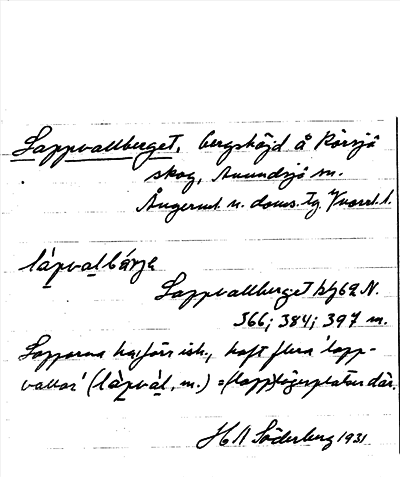 Lappvallberget, bergshöjd å Rörsjö
skog, Anundsjö sn.
Ångerml. n. doms. tg. Västernorrl. l.
làpvalbárjə
Lappvallberget bl 62 N.
366; 384; 397 m.
Lapparna ha, förr ish., haft flera 'lapp-
vallar' (làpvàl, m.) = (lapp)lägerplatser där.
H N Söderberg 1931